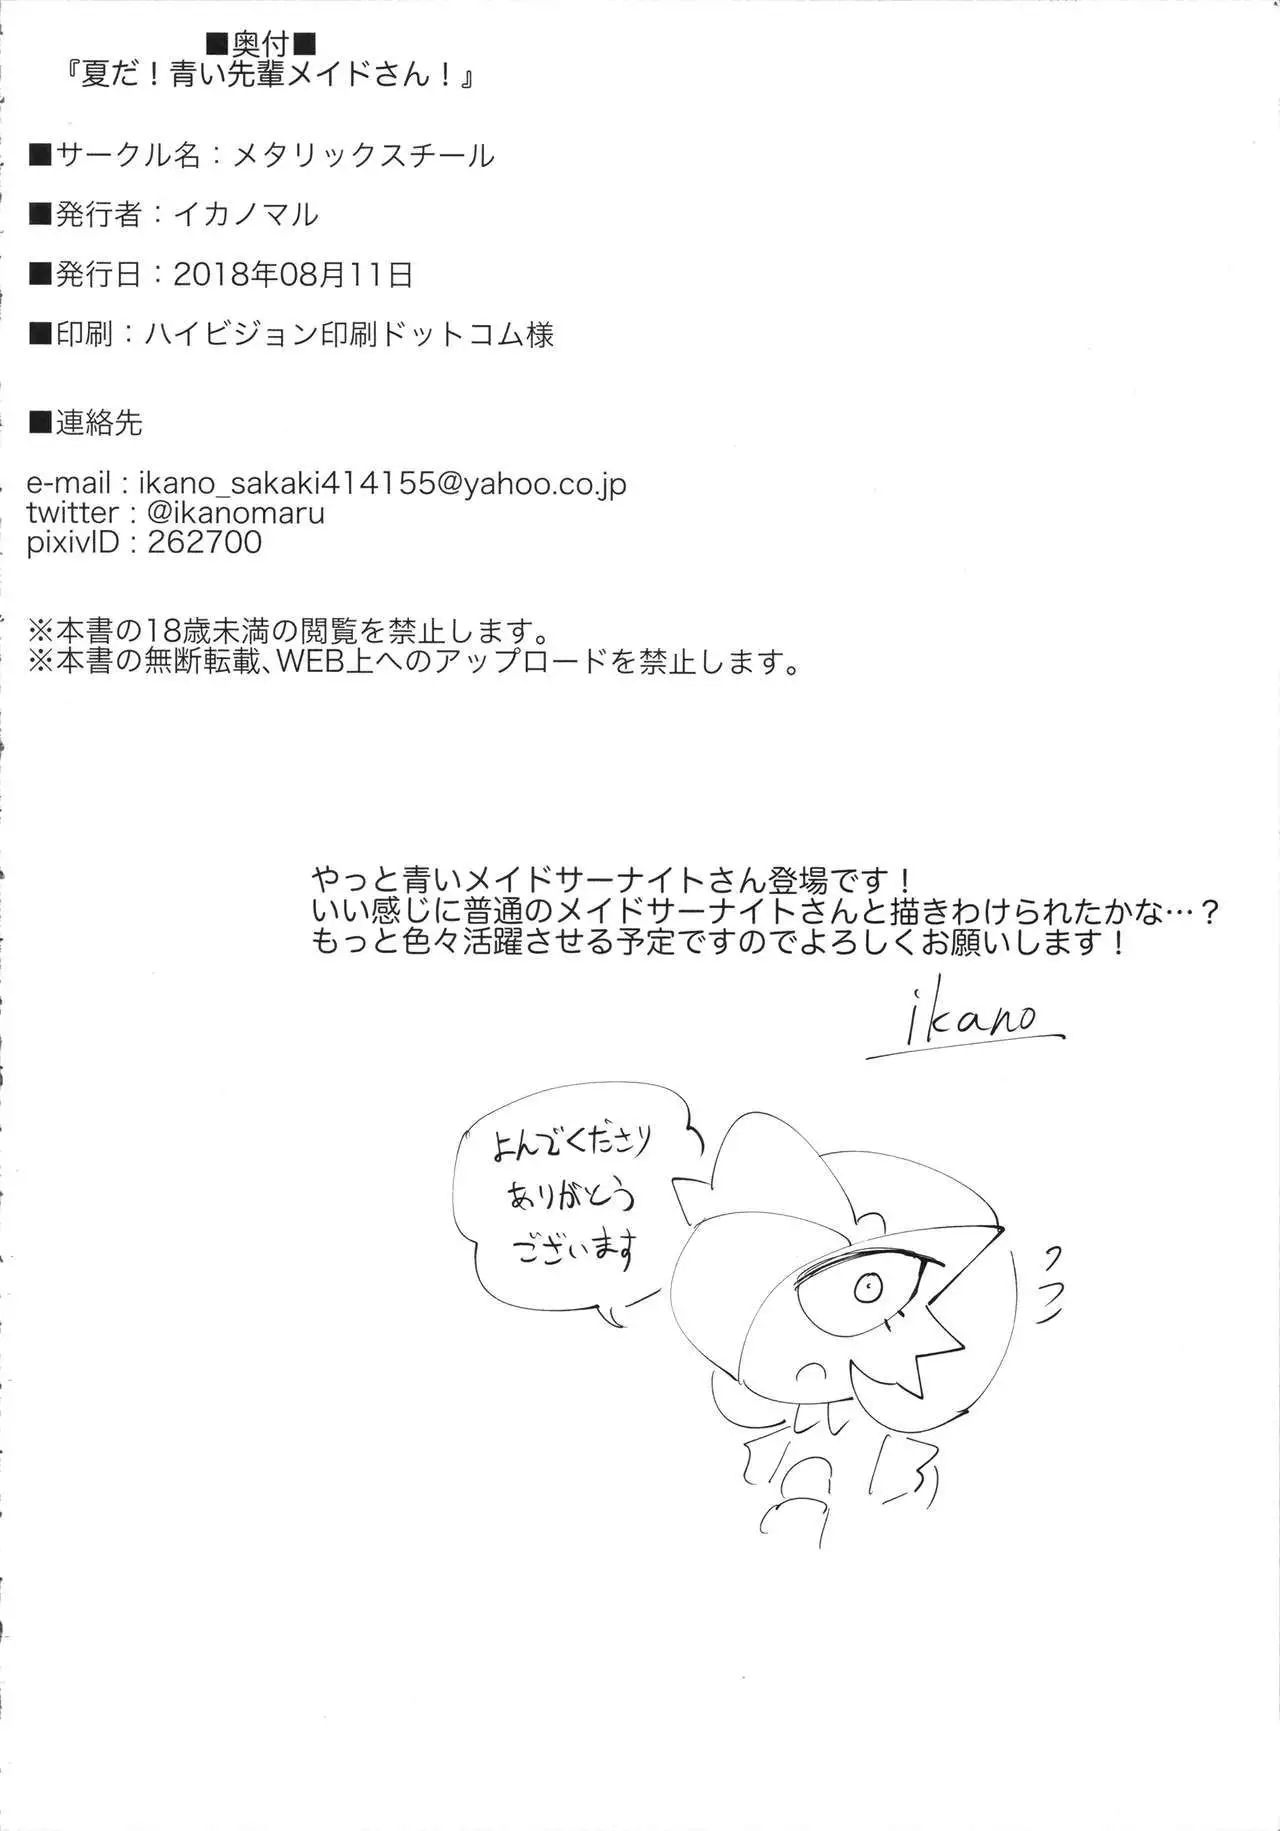 ■奥付■
『夏だ！青い先輩メイドさん！』
■サークル名：メタリックスチール
■発行者：イカノマル
■発行日：2018年08月11日
■印刷：ハイビジョン印刷ドットコム様
■連絡先
e-mail : ikano_sakaki414155@yahoo.co.jp
twitter : @ikanomaru
pixivID : 262700
※本書の18歳未満の閲覧を禁止します。
※本書の無断転載、WEB上へのアップロードを禁止します。
やっと青いメイドサーナイトさん登場です！
いい感じに普通のメイドサーナイトさんと描きわけられたかな…？
もっと色々活躍させる予定ですのでよろしくお願いします！
ikano
よんでくださり
ありがとう
ございます